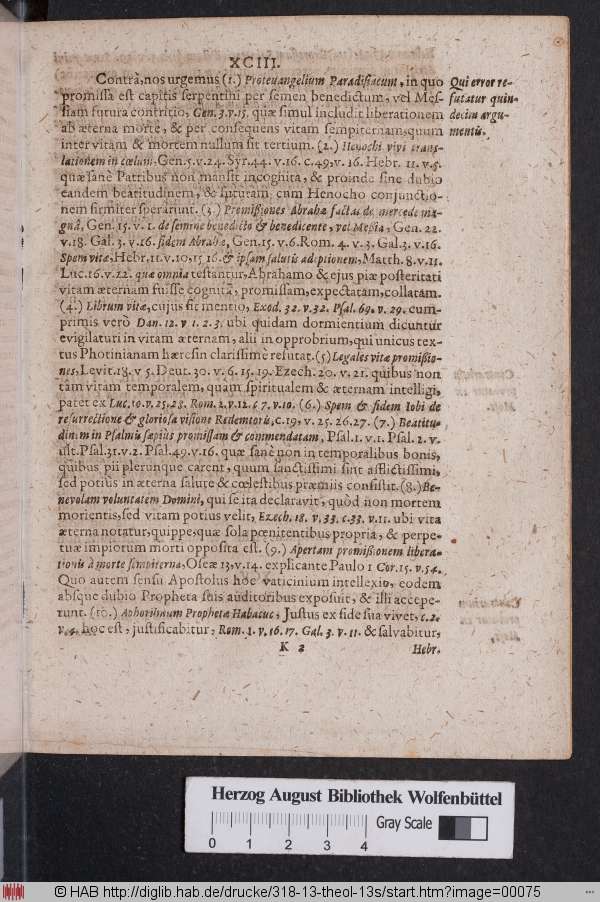 XCIII.
Contrà, nos urgemus (1.) Protevangelium Paradisiacum, in quo
promissa est capitis serpentini per semen benedictum, vel Mes-
siam futura contritio, Gen. 3. v. 15. quæ simul includit liberationem
ab æterna morte, & per consequens vitam sempiternam, quum
inter vitam & mortem nullum sit tertium. (2.) Henochi vivi trans-
lationem in cœlum, Gen. 5. v. 24. Syr. 44. v. 16. c. 49, v. 16. Hebr. 11. v. 5.
quæ sanè Patribus non mansit incognita, & proinde sine dubio
eandem beatitudinem, & futuram cum Henocho conjunctio-
nem firmiter sperarunt. (3.) Promißiones Abrahæ factas de mercede ma-
gnâ, Gen. 15. v. 1. de semine benedicto & benedicente, vel Meßia, Gen. 22.
v. 18. Gal. 3. v. 16. fidem Abrahæ, Gen. 15. v. 6. Rom. 4. v. 3. Gal. 3. v. 16.
Spem vitæ, Hebr. 11. v. 10, 15 16. & ipsam salutis adoptionem, Matth. 8. v. 11.
Luc. 16. v. 22. quæ omnia testantur, Abrahamo & ejus piæ posteritati
vitam æternam fuisse cognitā, promissam, expectatam, collatam.
(4.) Librum vitæ, cujus fit mentio, Exod. 32. v. 32. Psal. 69. v. 29. cum-
primis verò Dan. 12. v 1. 2. 3. ubi quidam dormientium dicuntur
evigilaturi in vitam æternam, alii in opprobrium, qui unicus tex-
tus Photinianam hæresin clarissimè refutat. (5) Legales vitæ promißio-
nes, Levit. 18. v 5. Deut. 30. v. 6. 15. 19. Ezech. 20. v. 21. quibus non
tàm vitam temporalem, quam spiritualem & æternam intelligi,
patet ex Luc. 10. v. 25. 28. Rom. 2. v. 12. & 7. v. 10. (6.) Spem & fidem Iobi de
resurrectione & gloriosa visione Redemtoris, c. 19, v. 25. 26. 27. (7.) Beatitu-
dinem in Psalmis sæpius promissam & commendatam, Psal. 1. v. 1. Psal. 2. v.
ult. Psal. 31. v. 2. Psal. 49. v. 16. quæ sanè non in temporalibus bonis,
quibus pii plerunque carent, quum sanctissimi sint afflictissimi,
sed potius in æterna salute & cœlestibus præmiis consistit. (8.) Be-
nevolam voluntatem Domini, qui se ita declaravit, quòd non mortem
morientis, sed vitam potius velit, Ezech. 18. v. 33. c. 33. v. 11. ubi vita
æterna notatur, quippe, quæ sola pœnitentibus propria, & perpe-
tuæ impiorum morti opposita est. (9.) Apertam promißionem libera-
tionis à morte sempiterna, Oseæ 13, v. 14. explicante Paulo 1 Cor. 15. v. 54.
Quo autem sensu Apostolus hoc vaticinium intellexit, eodem
absque dubio Propheta suis auditoribus exposuit, & illi accepe-
runt. (10.) Aphorismum Prophetæ Habacuc, Justus ex fide sua vivet, c. 2.
v. 4. hoc est, justificabitur, Rom. 1. v. 16. 17. Gal. 3. v. 11. & salvabitur,
K 2 Hebr.
Qui error re-
futatur quin-
decim argu-
mentis.
Herzog August Bibliothek Wolfenbüttel
0 1 2 3 4
Gray Scale
© HAB http://diglib.hab.de/drucke/318-13-theol-13s/start.htm?image=00075